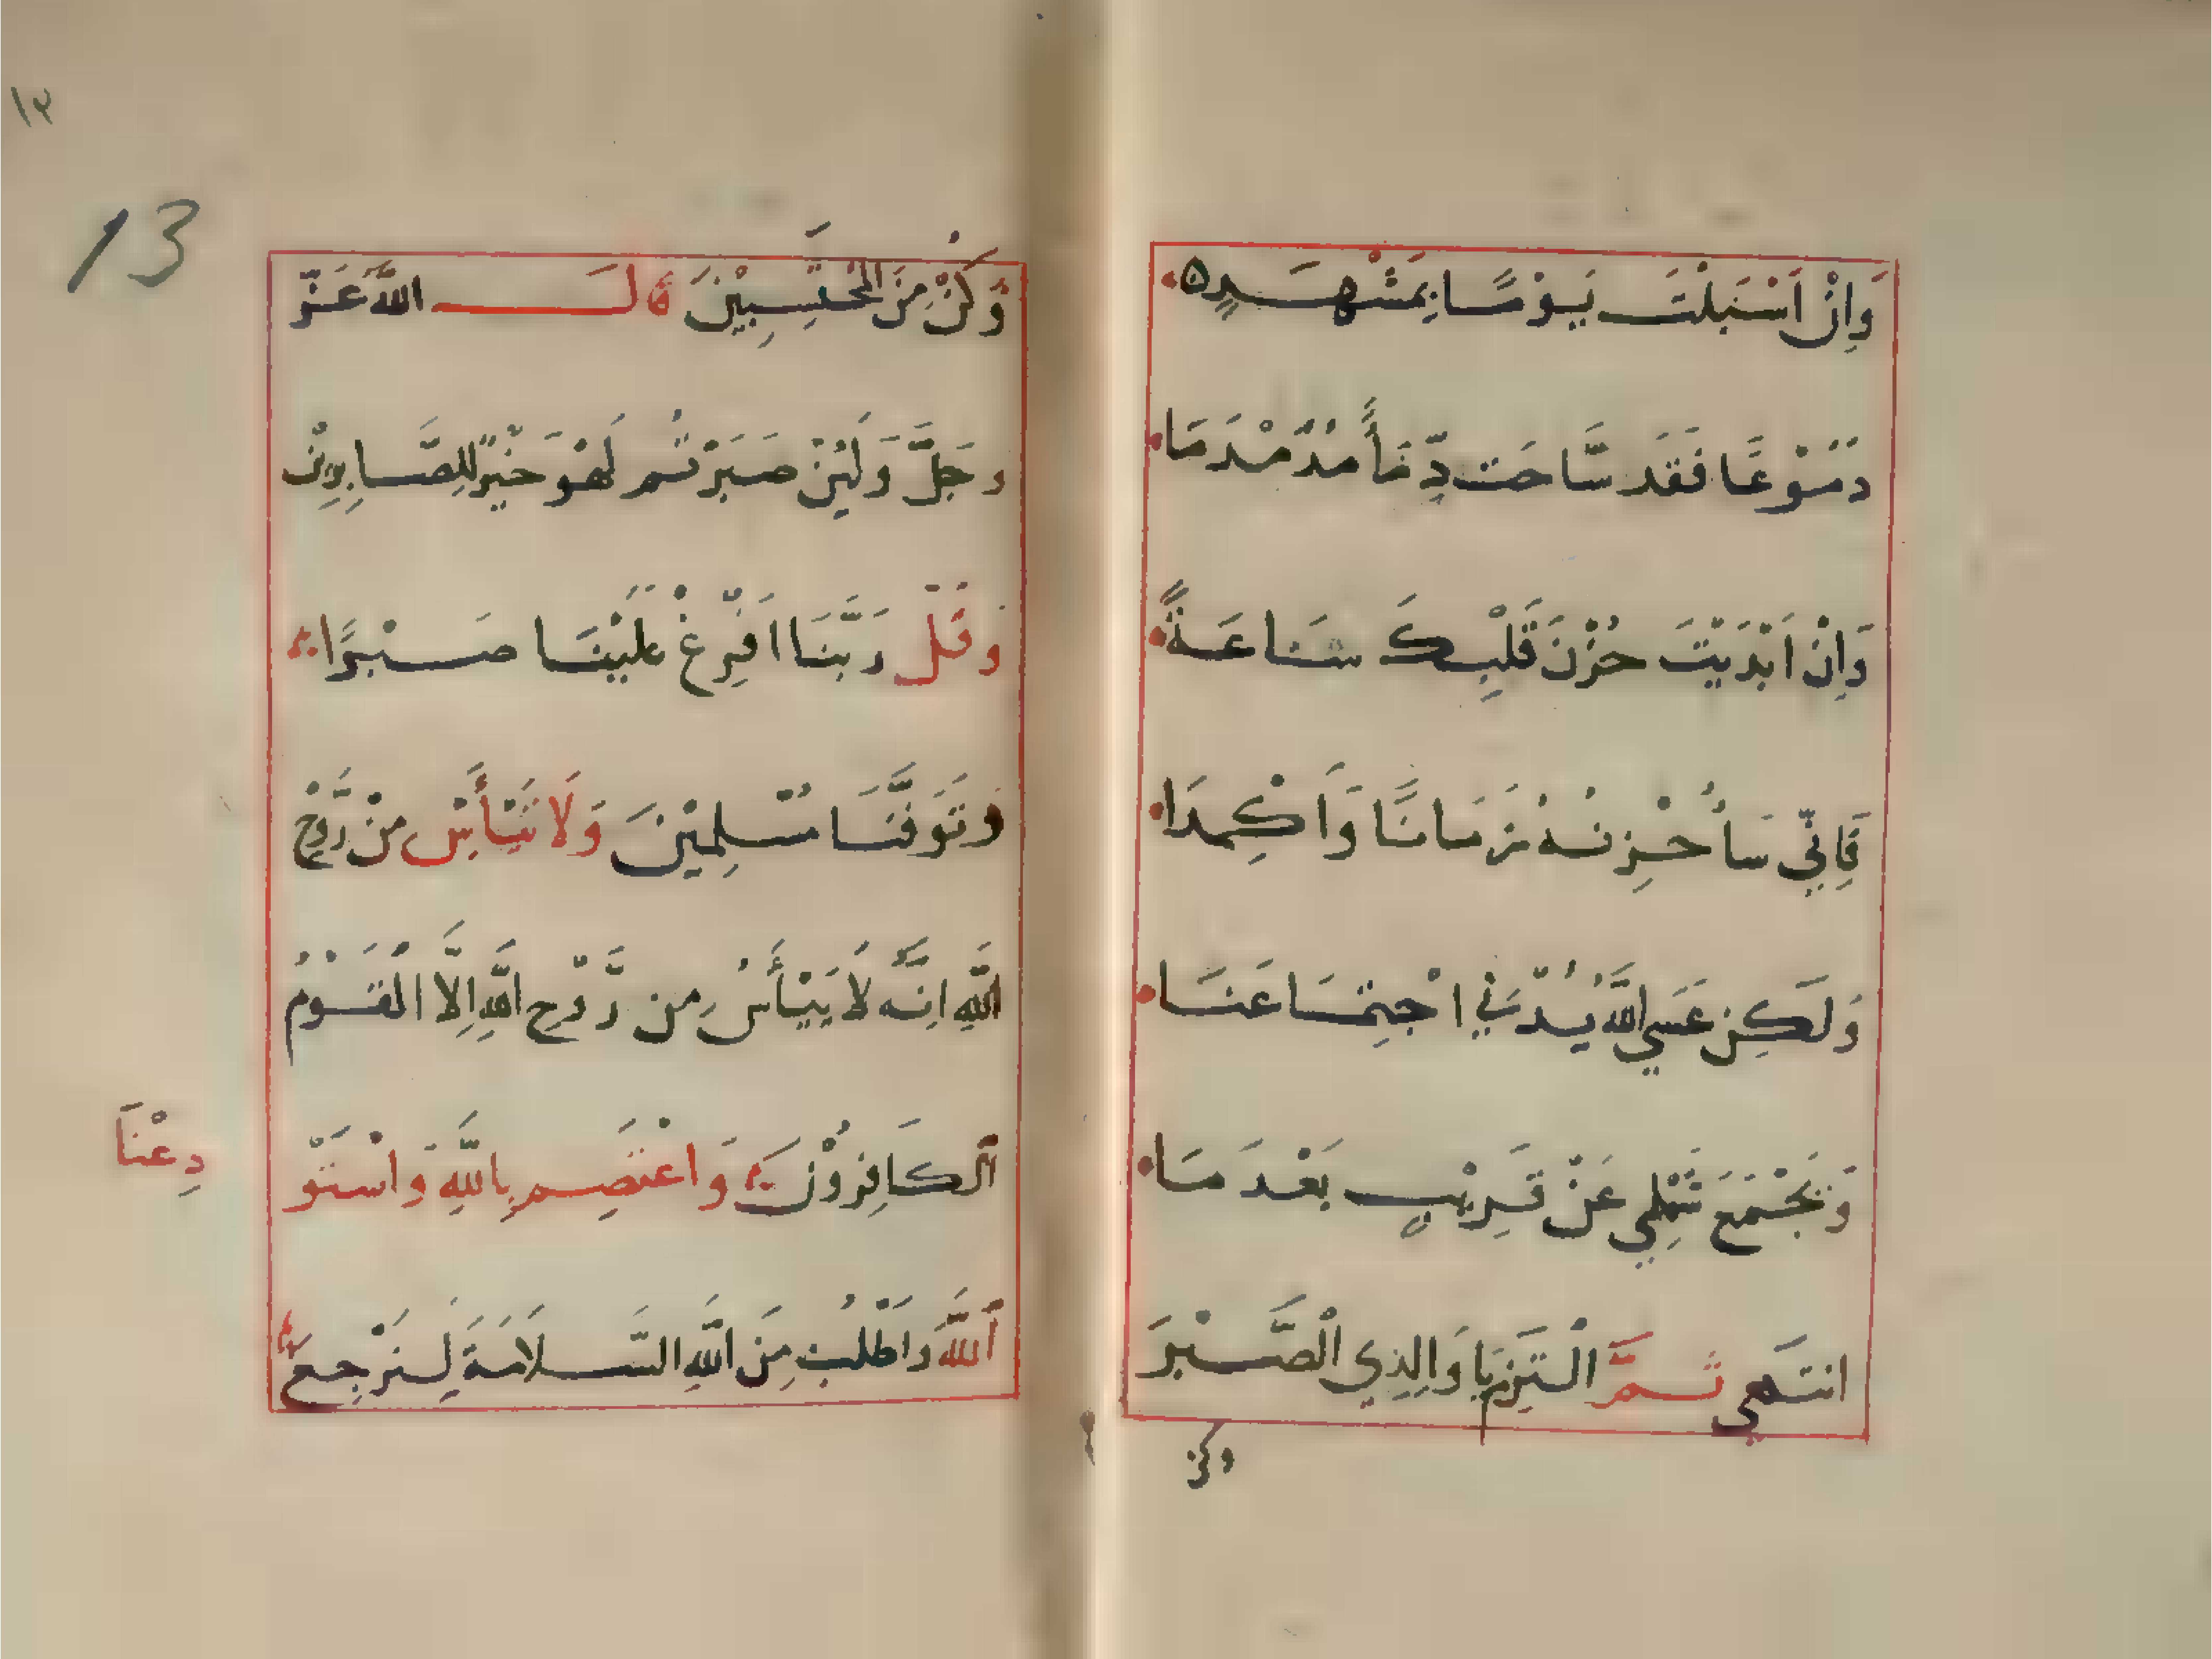 وَاِنْ اَسْبَلْتَ يَوْمًا بِمَشْهَدٍ
دَمُوْعًا فَقَد سَّاحَت دِّمَاً مُدْمْدَمَا
وَاِنْ اَبْدَيْتَ حُزْنَ قَلْبِكَ سَاعَةً
فَاِنِّي سَأُحْزِنُهُ زَمَانًا وَاَكْمِدَا
وَلَكِن عَسَي اللّٰهُ يُدْنِي اجْتِمَاعَنَا
وَنَجْمَعَ شَمْلِي عَنْ قَرِيْبٍ بَعْدَ مَا
انتهي ثُمَّ الْتَزِم يَا وَالِدِي الْصَّبْرَ
وكن
١٣
13
وَكُنْ مِنَ الْمُحْتَسِبِيْنَ قَالَ اللّٰهُ عَزَّ
وَجَلَّ وَلَئِنْ صَبَرْتُم لَهْوَ خَيْرٌ لِلصَّابِرِيْن
وَقُلْ رَبَّنَا اَفْرِغْ عَلَيْنَا صَبْرًا
وَتَوَفَّنَا مُسْلِمِيْنَ وَلَا تَيْأَسْ مِنْ رَّوْحِ
اللّٰهِ اِنَّهُ لَا يَيْأَسُ مِن رَّوْحِ اللّٰهِ اِلَّا الْقَوْمُ
اَلكَافِرُوْنَ وَاعْتَصِم بِاللّٰهِ وَاسْتَوْ
دِعْنَا
اَللّٰهَ وَاطْلُبْ مِنَ اللّٰهِ السَّلَامَةَ لِنَرْجِعَ